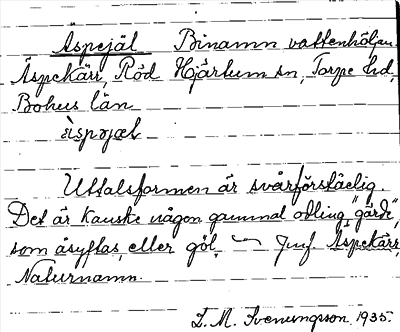 Äspejäl Binamn vattenhöljan
Äspekärr, Röd Hjärtum sn, Torpe hd,
Bohus län
Uttalsformen är svårförståelig.
Det är kanske någon gammal odling, "gärde",
som åsyftas, eller göl. ~ Jmf Äspekärr,
Naturnamn.
L. M. Svenungsson 1935.